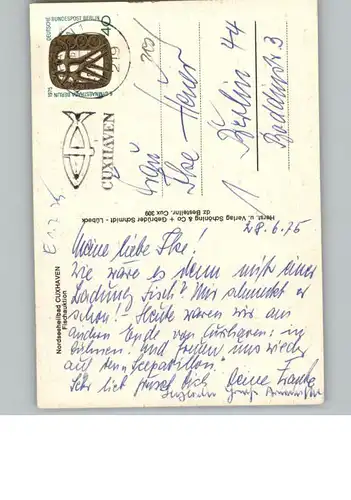 DEUTSCHE BUNDESPOST BERLIN
40
GYMNAESTRADA BERLIN
1975
219
CUXHAVEN
Frau
Ilse Heuer
1 Berlin 44
Boddinstr. 3
Herst. u. Verlag Schöning & Co + Gebrüder Schmidt - Lübeck
dz Bestellnr. Cux 309
Nordseeheilbad CUXHAVEN
Fischauktion
28.6.75
Meine liebe Ilse!
Wie wäre es denn mit einer
Ladung Fisch? Mir schmeckt er
schon! - Heute waren wir am
andern Ende von Cuxhaven: in
und freuen uns wieder
auf den "Seepavillon".
Sehr lieb grüsst Dich Deine
Herzliche Grüße